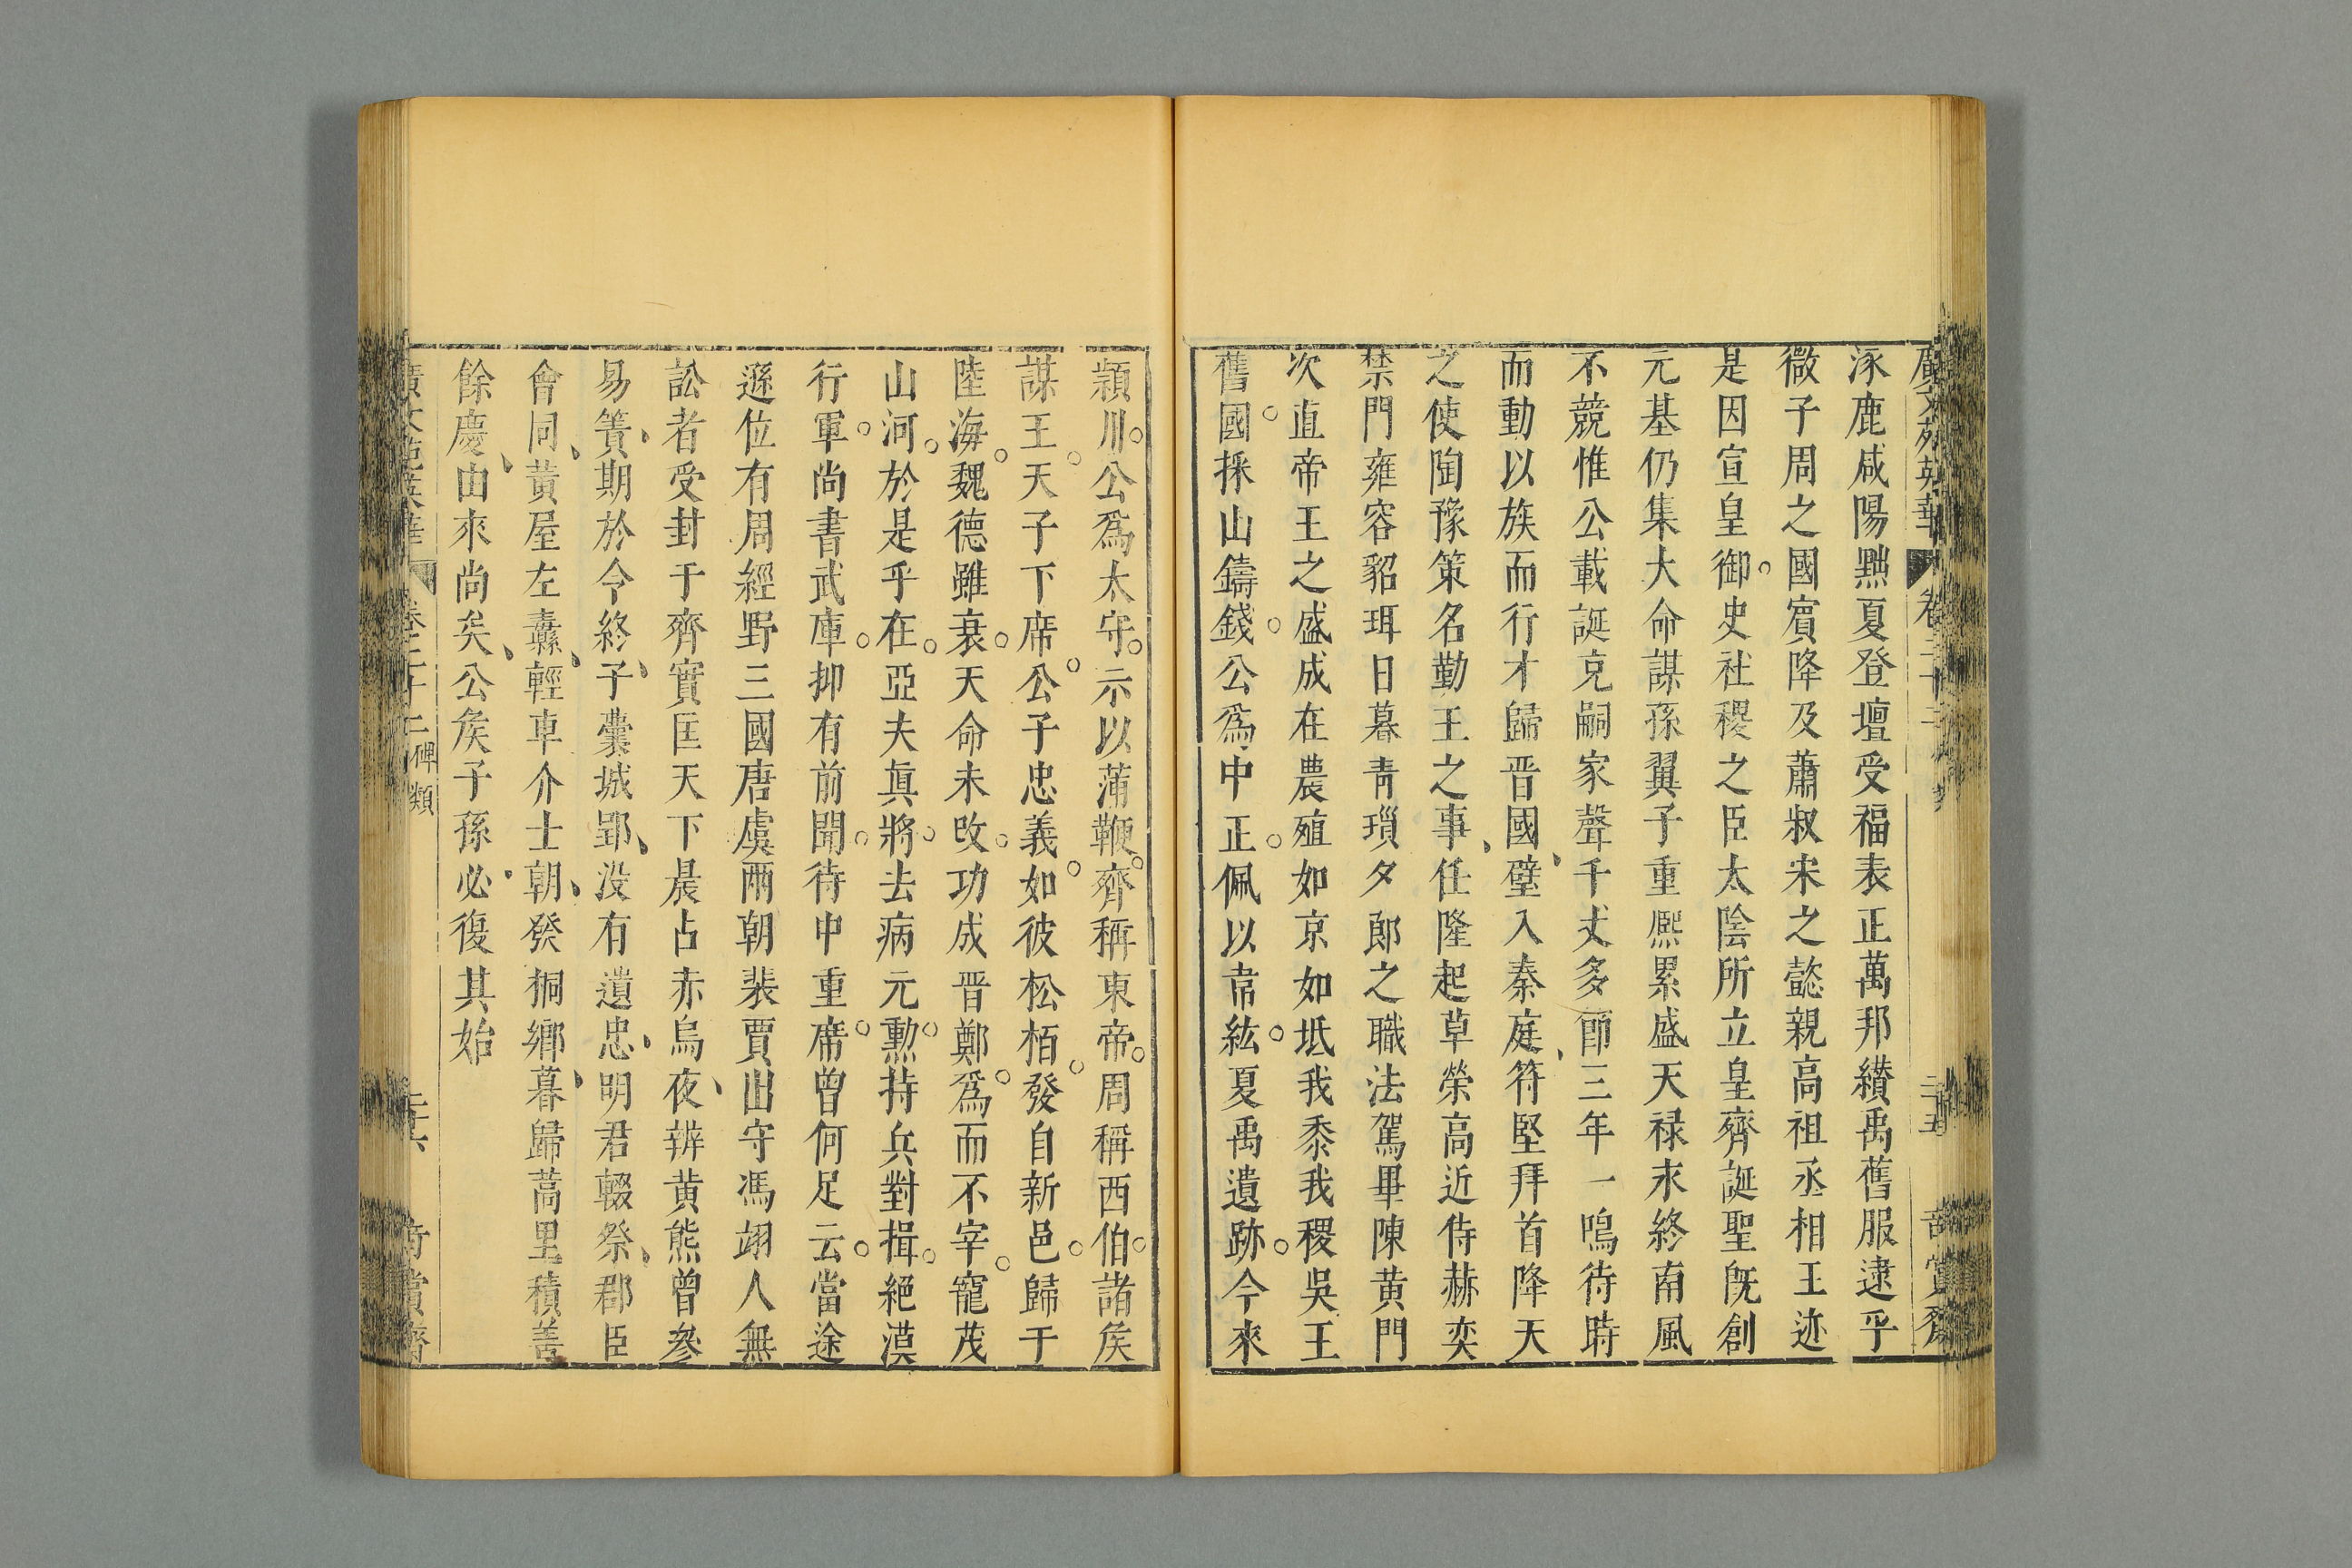 廣文苑英華 卷二十二
涿鹿咸陽黜夏登壇受福表正萬邦纉禹舊服逮乎
微子周之國賔降及蕭叔宋之懿親高祖丞相王迹
是因宣皇御史社稷之臣太陰所立皇齊誕聖旣創
元基仍集大命謀孫翼子重熈累盛天禄永終南風
不競惟公載誕克嗣家聲千丈多節三年一鳴待時
而動以族而行才歸晋國璧入秦庭符堅拜首降天
之使陶豫策名勤王之事任隆起草榮高近侍赫奕
禁門雍容貂珥日暮青瑣夕郎之職法駕畢陳黄門
次直帝王之盛成在農殖如京如坻我黍我稷吳王
舊國採山鑄錢公爲中正佩以韋紘夏禹遺跡今來
潁川公爲太守示以蒲鞭齊稱東帝周稱西伯諸矦
謀王天子下席公子忠義如彼松栢發自新邑歸于
陸海魏德雖衰天命未改功成晋鄭爲而不宰寵茂
山河於是乎在亞夫眞將去病元勲持兵對揖絕漠
行軍尚書武庫抑有前聞待中重席曾何足云當途
遜位有周經野三國唐虞兩朝裴賈出守馮翊人無
訟者受封于齊實匡天下晨占赤烏夜辨黄熊曾參
易簀期於令終子囊城郢没有遺忠明君輟祭郡臣
會同黄屋左纛輕車介士朝發桐鄉暮歸蒿里積善
餘慶由來尚矣公矦子孫必復其始
廣文苑英華 卷二十二 碑類 二十六